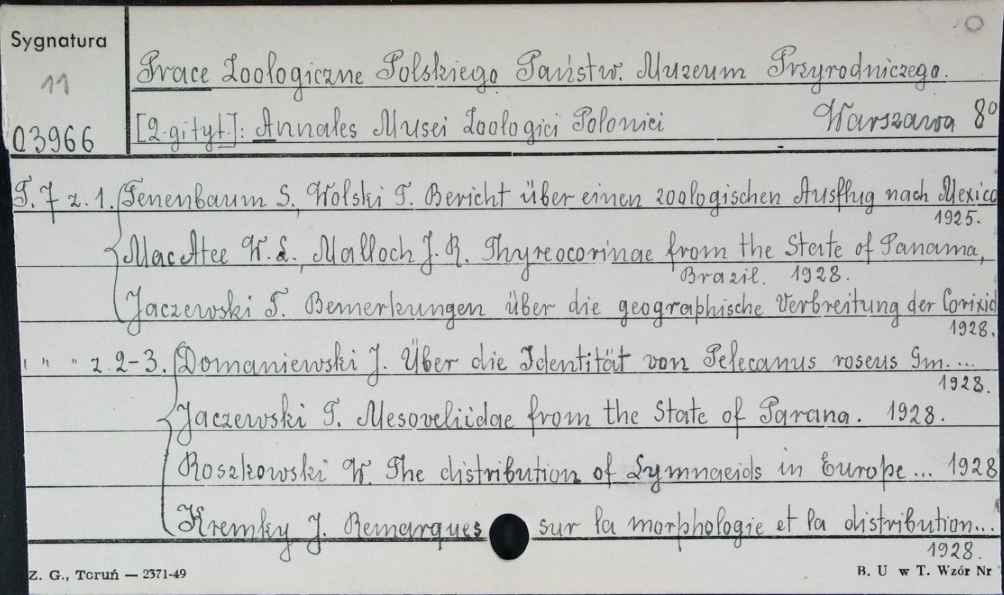 Sygnatura
11
03966
Prace Zoologiczne Polskiego Państw. Muzeum Przyrodniczego.
[2-gi tyt.]: Annales Musei Zoologici Polonici Warszawa 8°
T. 7 z. 1. Tenenbaum S., Wolski T. Bericht über einen zoologischen Ausflug nach Mexico
1925.
Mac Atee W. L., Malloch J. R. Thyreocorinae from the State of Panama,
Brazil. 1928.
Jaczewski T. Bemerkungen über die geographische Verbreitung der Corixid
1928.
" " " z. 2-3. Domaniewski J. Über die Identität von Pelecanus roseus Gm. ...
1928.
Jaczewski T. Mesoveliidae from the State of Parana. 1928.
Roszkowski W. The distribution of Lymnaeids in Europe ... 1928
Kremky J. Remarques sur la morphologie et la distribution...
1928.
Z. G., Toruń — 2371-49
B. U w T. Wzór Nr